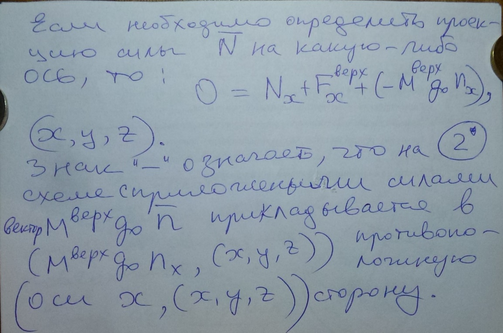 Если необходимо определить проек-
цию силы N̅ на какую-либо
ось, то:
0 = Nₓ + Fₓ^верх + (-M^верх до nₓ),
(x, y, z).
Знак "—" означает, что на 2°
схеме с приложенными силами
вектор M^верх до n̅ прикладывается в
(M^верх до nₓ, (x, y, z)) противопо-
ложную
(оси x, (x, y, z)) сторону.